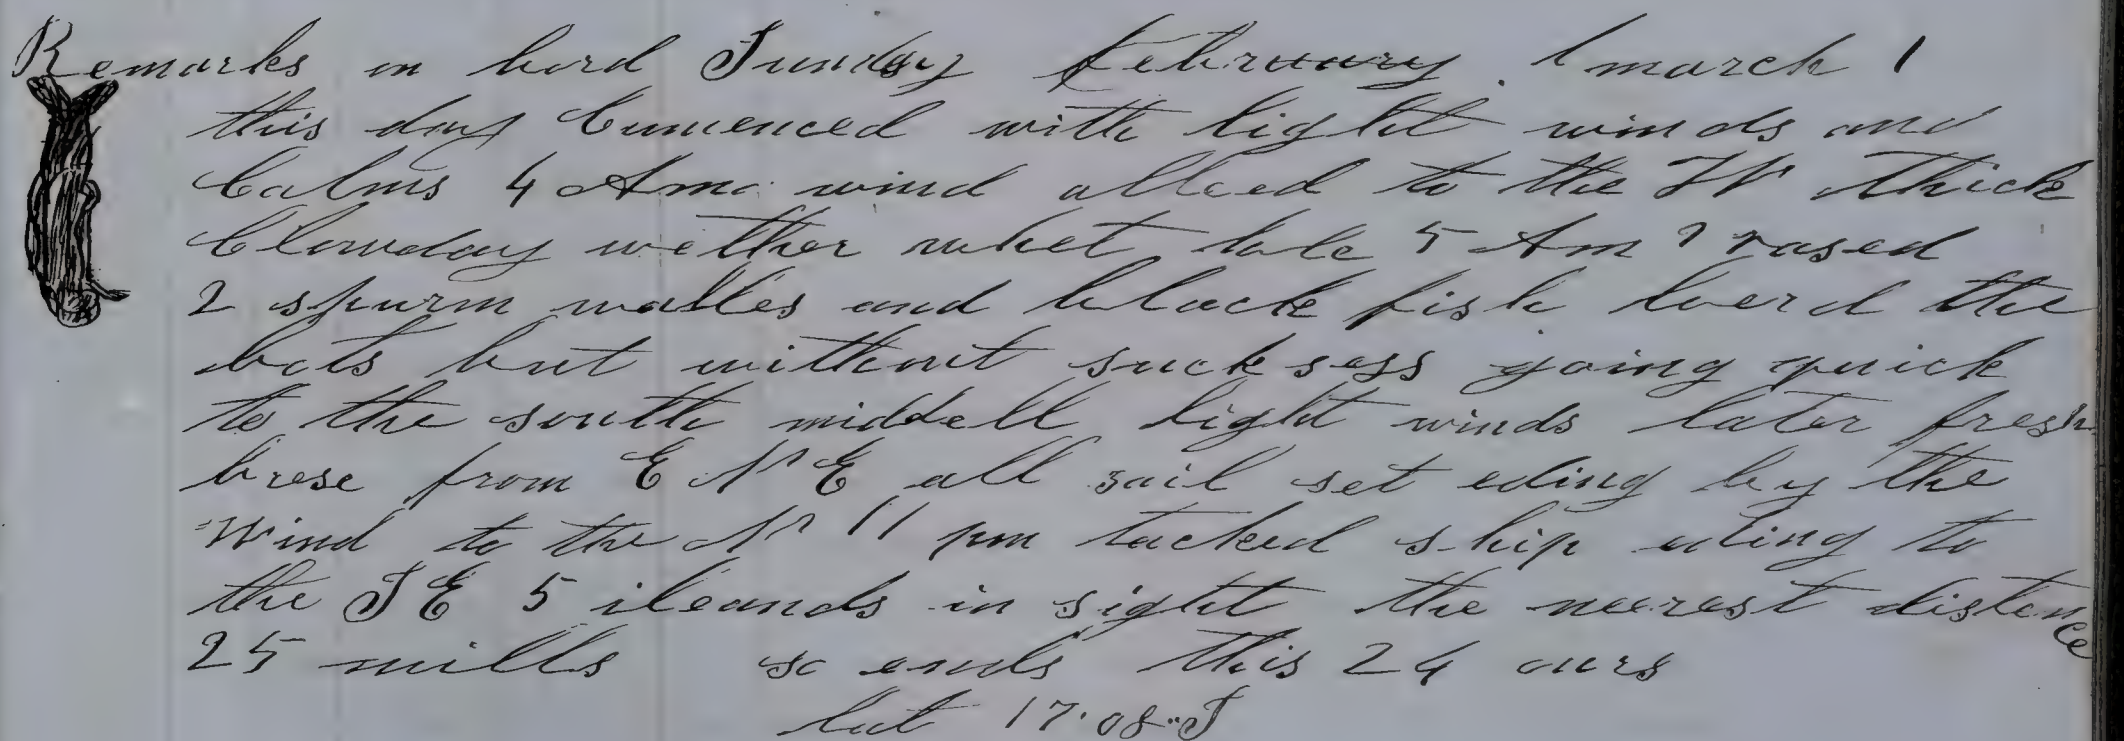 Remarks on bord Sunday February 1 march 1
this day Cumenced with light winds and
Calms 4 Am wind alled to the W thick
Clowday wether 5 Am rased
2 spurm walles and black fish loerd the
bots but without sucksess going quick
to the south middell light winds later fresh
brese from E N E all sail set eding by the
Wind to the N 11 pm tacked ship eding to
the S E 5 ileands in sight the neerest distence
25 mills so ends this 24 ours
lat 17.08.S